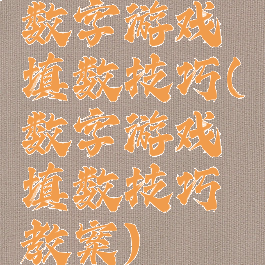 数字游戏
填数技巧(
数字游戏
填数技巧
教案)